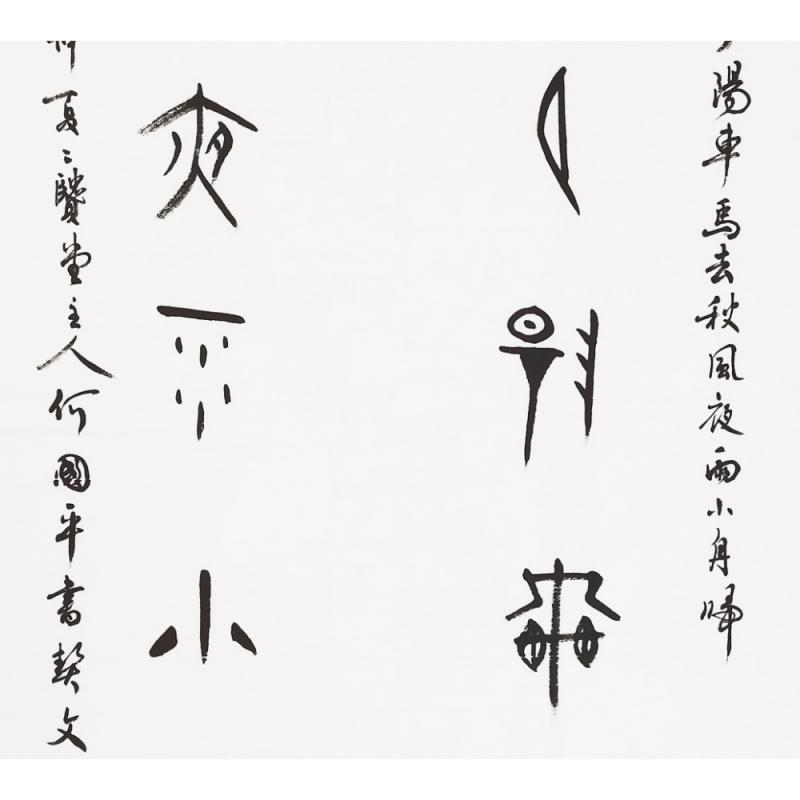 陽車馬去秋風夜雨小舟歸
夕陽車
夜雨小
夏〻堂主人何國平書契文